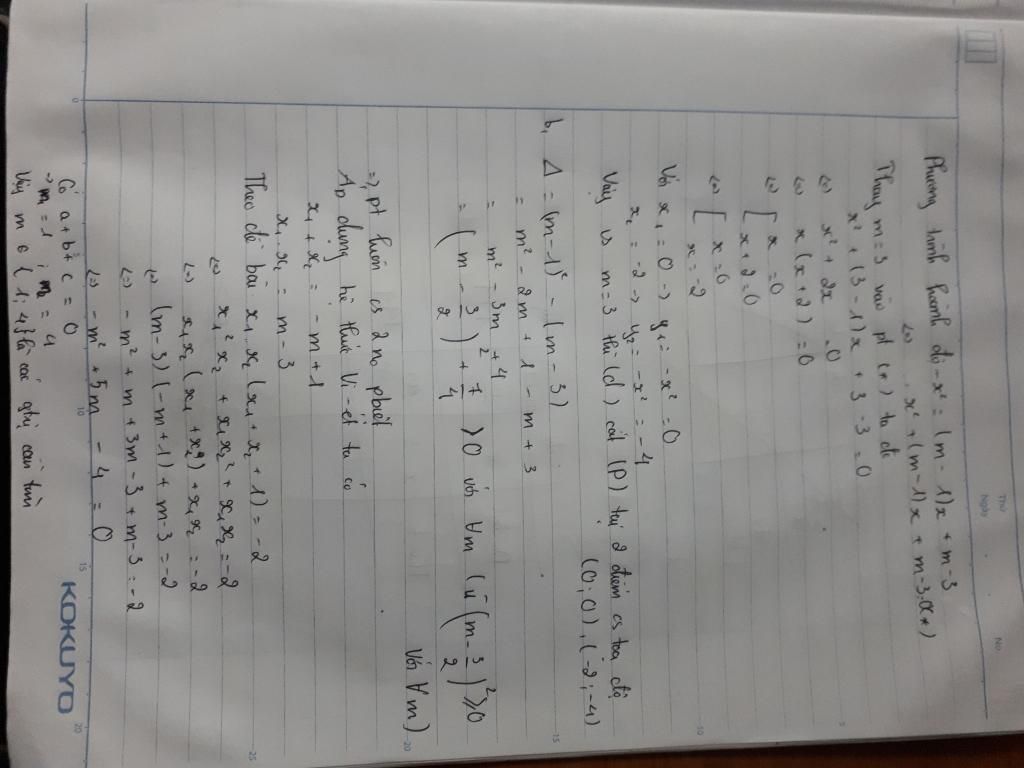 Thứ
Ngày
No.
Phương trình hoành độ -x² = (m - 1)x + m - 3
<=> x² + (m - 1)x + m - 3 = 0 (*)
Thay m = 3 vào pt (*) ta đc
x² + (3 - 1)x + 3 - 3 = 0
<=> x² + 2x = 0
<=> x (x + 2) = 0
<=> [ x = 0
x + 2 = 0
<=> [ x = 0
x = -2
Với x₁ = 0 -> y₁ = -x² = 0
x₂ = -2 -> y₂ = -x² = -4
Vậy m = 3 thì (d) cắt (P) tại 2 điểm có tọa độ
(0; 0), (-2; -4)
b, Δ = (m - 1)² - (m - 3)
= m² - 2m + 1 - m + 3
= m² - 3m + 4
= (m - 3/2)² + 7/4 > 0 với ∀m (vì (m - 3/2)² ≥ 0
Với ∀m)
=> pt luôn có 2 no pbiệt
Áp dụng hệ thức Vi-ét ta có
x₁ + x₂ = - m + 1
x₁ . x₂ = m - 3
Theo đề bài x₁ . x₂ (x₁ + x₂ + 1) = -2
<=> x₁² x₂ + x₁ x₂² + x₁ x₂ = -2
<=> x₁ x₂ (x₁ + x₂) + x₁ x₂ = -2
<=> (m - 3) (- m + 1) + m - 3 = -2
<=> - m² + m + 3m - 3 + m - 3 = -2
<=> - m² + 5m - 4 = 0
Có a + b + c = 0
-> m = 1, m₂ = 4
Vậy m ∈ {1; 4} là các gtrị cần tìm
KOKUYO